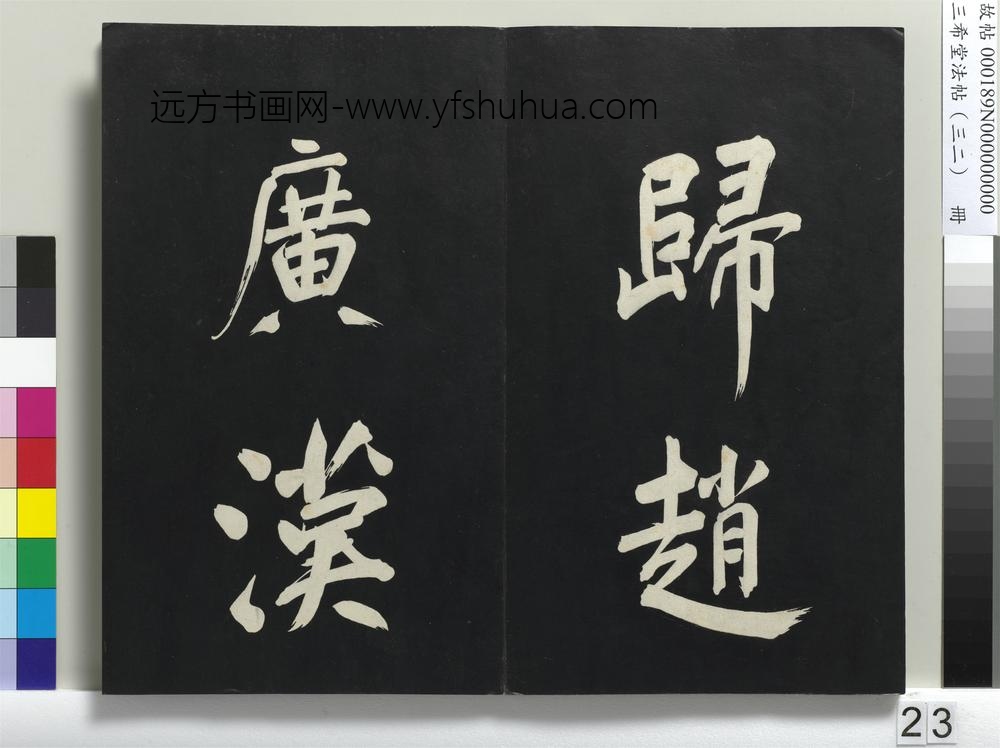 远方书画网-www.yfshuhua.com
歸趙
廣漢
故帖 000189N000000000
三希堂法帖（三二） 冊
23